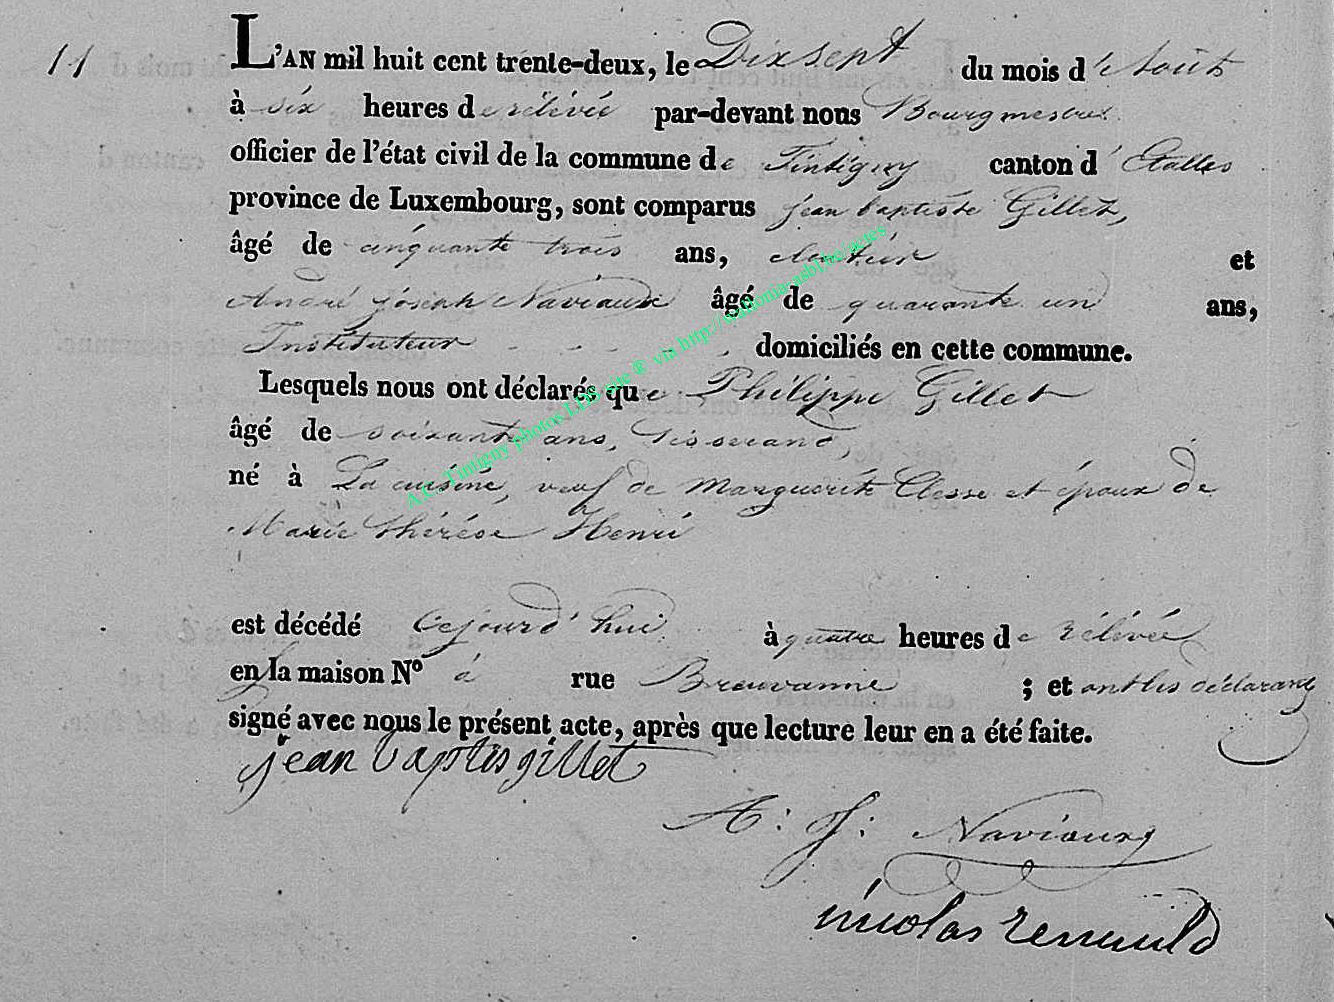 11
L'AN mil huit cent trente-deux, le Dix sept du mois d'Août
à six heures de rélévée par-devant nous Bourgmestre
officier de l'état civil de la commune de Tintigny canton d'Etalles
province de Luxembourg, sont comparus jean baptiste Gillet,
âgé de cinquante trois ans, cloutier et
André joseph Naviaux âgé de quarante un ans,
Instituteur domiciliés en cette commune.
Lesquels nous ont déclarés que Philippe Gillet
âgé de soixante ans, tisserand,
né à La cuisine, veuf de Marguerite Clesse et époux de
Marie thérése Henri
est décédé cejourd'hui à quatre heures de rélévée
en la maison N° à rue Breuvanne ; et ont les déclarans
signé avec nous le présent acte, après que lecture leur en a été faite.
jean baptis gillet
A: J: Naviaux
nicolas
A.C. Tintigny photos LDS site ® via http://wallonia-asbl.be/actes